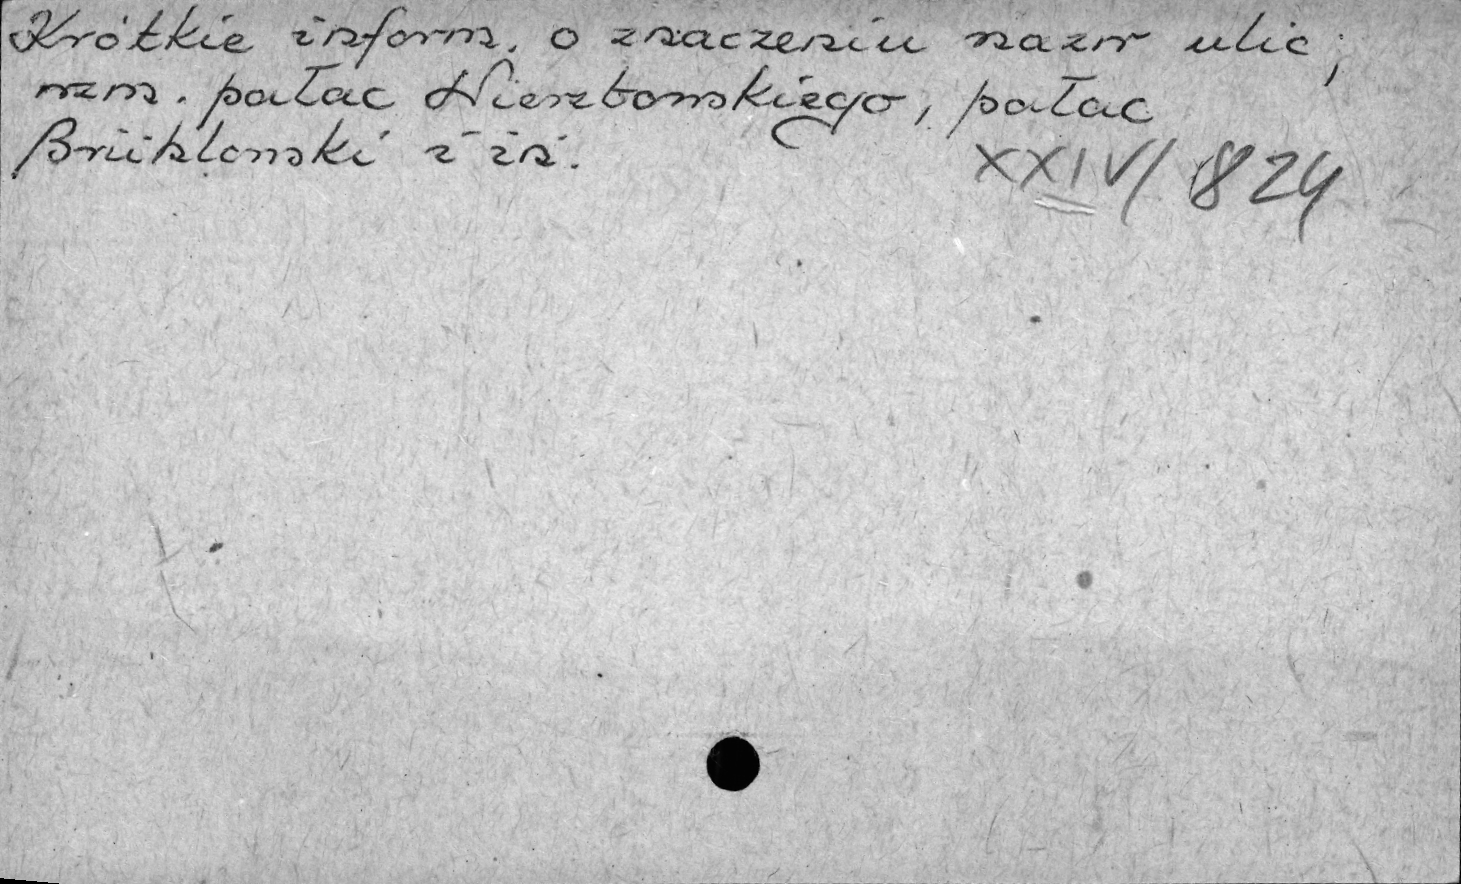 Krótkie inform. o znaczeniu nazw ulic;
wzm. pałac Wierzbowskiego, pałac
Brühlowski i in.
XXIV/824